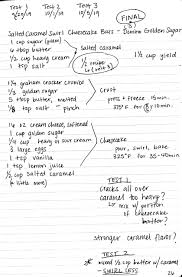 Test 1 Test 2 Test 3
10/1/19 10/5/19
FINAL
Salted Caramel Swirl Cheesecake Bars - Domino Golden Sugar
1 cup sugar (gram)
6 tbsp butter
1/2 cup heavy cream
1 tsp salt
Salted caramel
1 1/2 cup yield
1 1/2 graham cracker crumbs
1/3 golden sugar
5 tbsp butter, melted
1/8 tsp salt
Crust
press + freeze 15 min.
325°F for 10 min.
16 oz cream cheese, softened
1 cup golden sugar
1/4 cup heavy or sour cream
3 large eggs
1 tsp vanilla
1 tsp lemon juice
1/2 cup salted caramel
(+ little more)
Cheesecake
pour, swirl, bake
325°F for 35-40min
TEST 1
cracks all over
caramel too heavy?
↳ mix w/ portion
of cheesecake
batter?
stronger caramel flavor?
TEST 2
* mixed 1/2 cup batter w/ caramel
SWIRL LESS